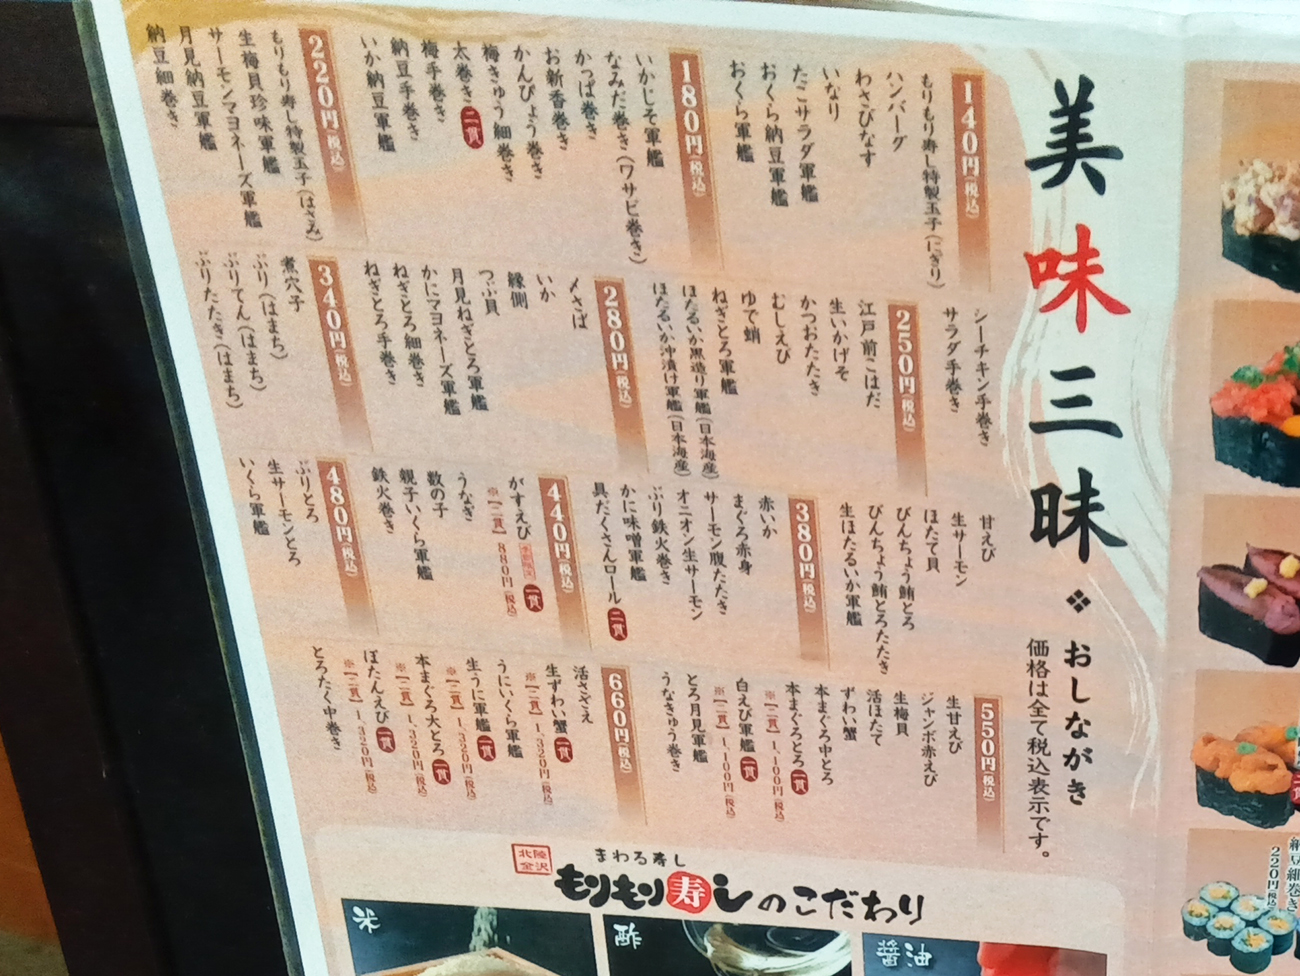 美味三昧 ❖ おしながき
価格は全て税込表示です。
140円(税込)
もりもり寿し特製玉子(にぎり)
ハンバーグ
わさびなす
いなり
たこサラダ軍艦
おくら納豆軍艦
おくら軍艦
180円(税込)
いかじそ軍艦
なみだ巻き(ワサビ巻き)
かっぱ巻き
お新香巻き
かんぴょう巻き
梅きゅう細巻き
太巻き 二貫
梅手巻き
納豆手巻き
いか納豆軍艦
220円(税込)
もりもり寿し特製玉子(はさみ)
生梅貝珍味軍艦
サーモンマヨネーズ軍艦
月見納豆軍艦
納豆細巻き
シーチキン手巻き
サラダ手巻き
250円(税込)
江戸前こはだ
生いかげそ
かつおたたき
むしえび
ゆで蛸
ねぎとろ軍艦
ほたるいか黒造り軍艦(日本海産)
ほたるいか沖漬け軍艦(日本海産)
280円(税込)
〆さば
いか
縁側
つぶ貝
月見ねぎとろ軍艦
かにマヨネーズ軍艦
ねぎとろ細巻き
ねぎとろ手巻き
340円(税込)
煮穴子
ぶり(はまち)
ぶりてん(はまち)
ぶりたたき(はまち)
甘えび
生サーモン
ほたて貝
びんちょう鮪とろ
びんちょう鮪とろたたき
生ほたるいか軍艦
380円(税込)
赤いか
まぐろ赤身
サーモン腹たたき
オニオン生サーモン
ぶり鉄火巻き
かに味噌軍艦
具だくさんロール 二貫
440円(税込)
がすえび 一貫
※【二貫】880円(税込)
うなぎ
数の子
親子いくら軍艦
鉄火巻き
480円(税込)
ぶりとろ
生サーモンとろ
いくら軍艦
550円(税込)
生甘えび
ジャンボ赤えび
生梅貝
活ほたて
ずわい蟹
本まぐろ中とろ
本まぐろとろ 一貫
※【二貫】1,100円(税込)
白えび軍艦 一貫
※【二貫】1,100円(税込)
とろ月見軍艦
うなきゅう巻き
660円(税込)
活さざえ
生ずわい蟹 一貫
※【二貫】1,320円(税込)
うにいくら軍艦
生うに軍艦 一貫
※【二貫】1,320円(税込)
本まぐろ大とろ 一貫
※【二貫】1,320円(税込)
ぼたんえび 一貫
※【二貫】1,320円(税込)
とろたく中巻き
北陸
金沢
まわる寿し
もりもり寿しのこだわり
米
酢
醤油
納豆細巻き
220円(税込)